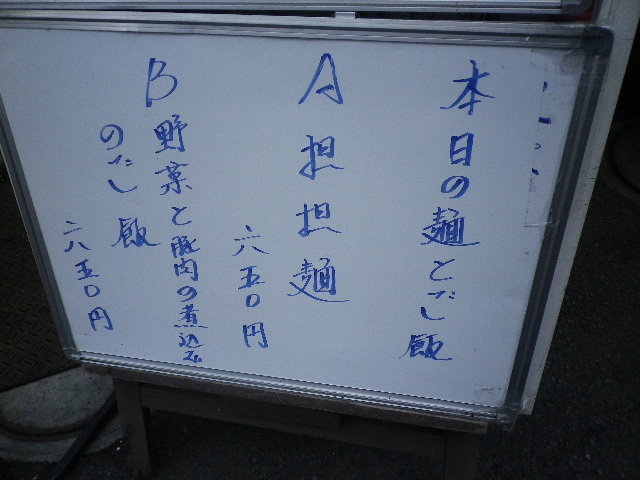 本日の麺とだし飯
A 担担麺
六五〇円
B 野菜と豚肉の煮込み
のだし飯
六五〇円